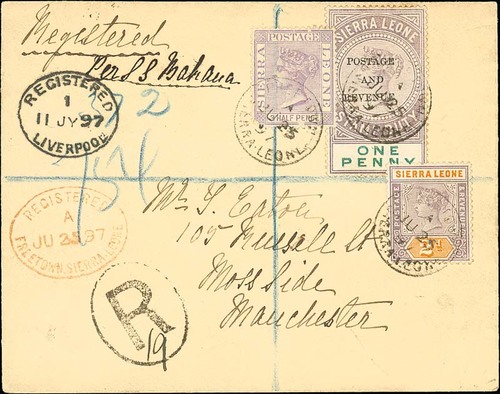 Registered
Per SS Bakana
REGISTERED
1
11 JY 97
LIVERPOOL
POSTAGE
SIERRA
LEONE
HALF PENNY
SIERRA LEONE
POSTAGE
AND
REVENUE
ONE
PENNY
SIERRA LEONE
POSTAGE
REVENUE
REGISTERED
A
JU 25 97
FREETOWN SIERRA LEONE
Mr. S. Eaton
105 Russell St
Moss Side
Manchester
R
19